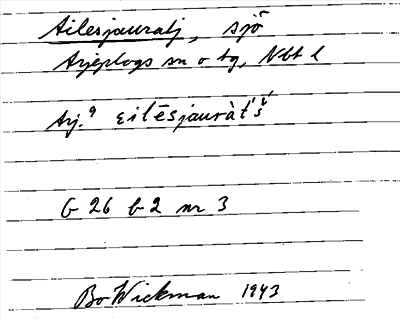 Ailesjauratj, sjö
Arjeplogs sn o tg, Nbt l
Arj.⁹ εilēsjauràt́š́
G 26 b 2 nr 3
Bo Wickman 1943